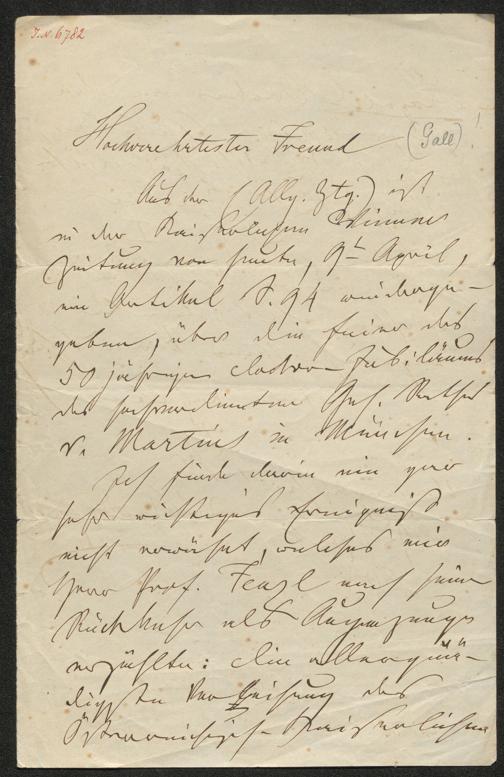 J.N. 6782
Hochverehrtester Freund
(Gall)!
Aus der (Allg. Ztg.) ist
in der Kaiserlichen Wiener
Zeitung von heute, 9t April,
ein Artikel S. 94 wiederge-
geben, über die Feier des
50 jährigen Doctor-Jubiläums
des hochverdienten Geh. Rathes
v. Martius in München.
Ich finde darin ein gar
sehr wichtiges Ereigniß
nicht erwähnt, welches mir
Herr Prof. Fenzl nach seiner
Rückkehr als Augenzeuge
erzählte: die allergnä-
digste Verleihung des
Österreichisch-Kaiserlichen